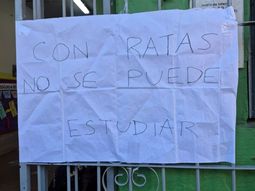 CON RATAS
NO SE PUEDE
ESTUDIAR